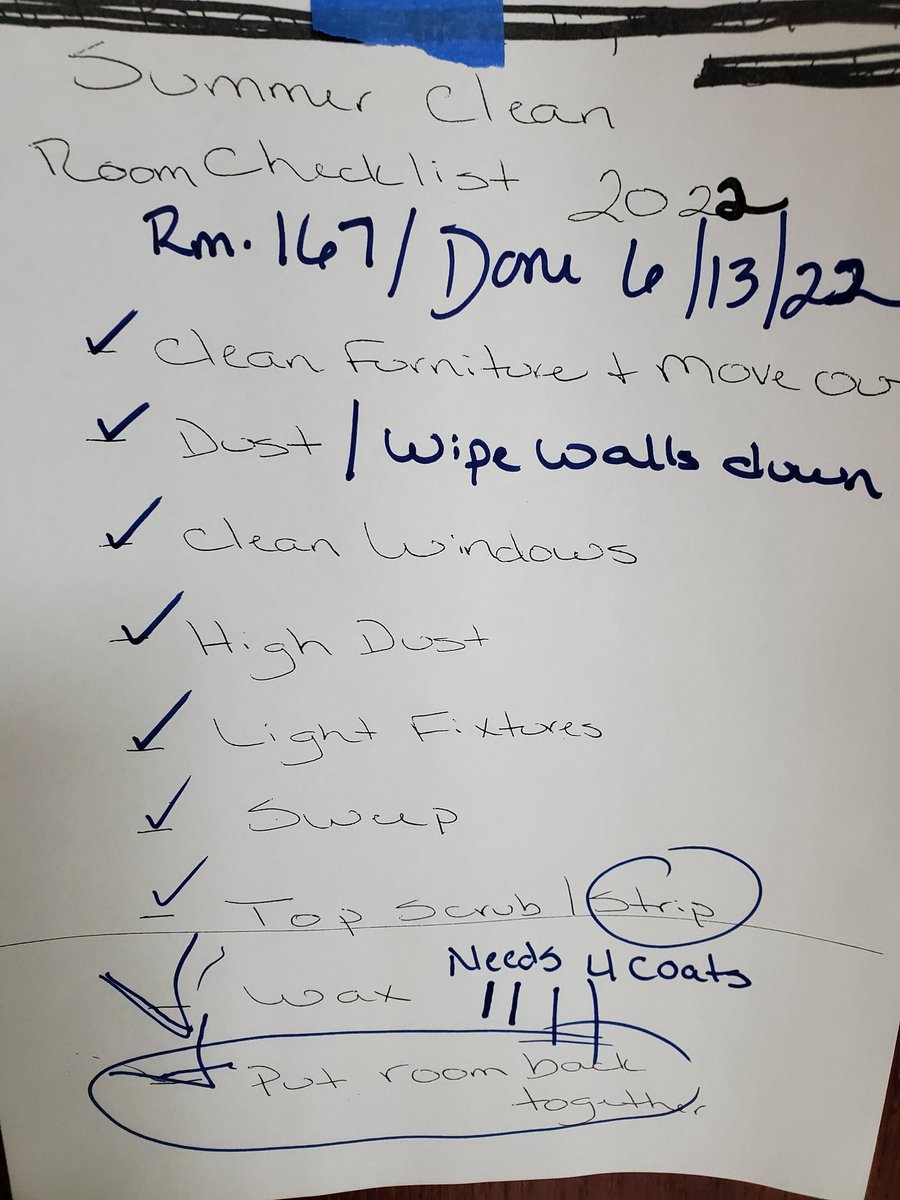 Summer Clean
Room Checklist 2022
Rm. 167 / Done 6/13/22
✓ Clean Furniture + Move ou
✓ Dust / Wipe walls down
✓ Clean Windows
✓ High Dust
✓ Light Fixtures
✓ Sweep
✓ Top Scrub / Strip
Needs 4 Coats
✓ Wax ||||
✓ Put room back
together